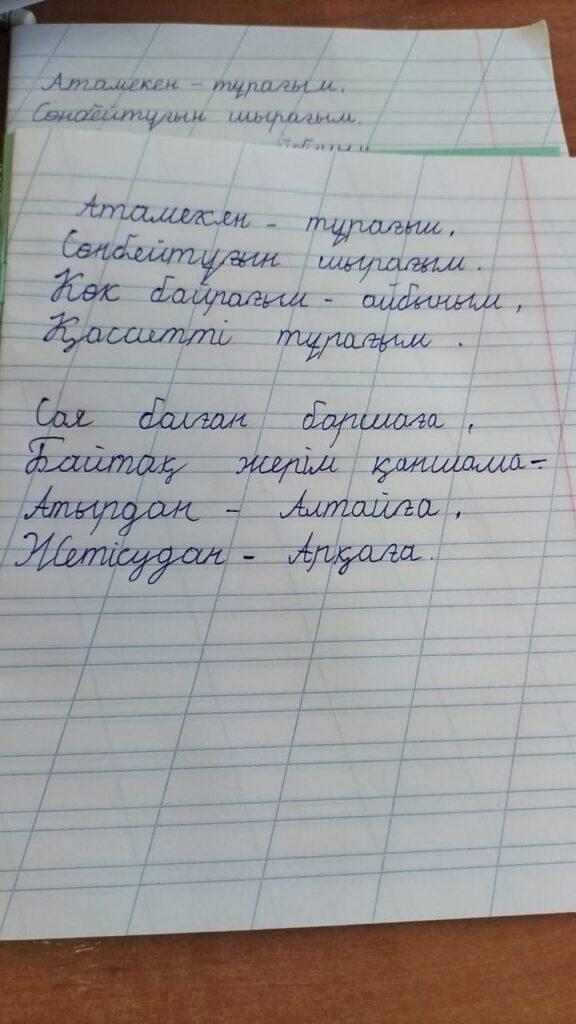 Атамекен - тұрағым,
Сөнбейтұғын шырағым.
Атамекен - тұрағым,
Сөнбейтұғын шырағым.
Көк байрағым - айбыным,
Қасиетті тұрағым.
Сая болған баршаға,
Байтақ жерім қаншама-
Атырдан - Алтайға,
Жетісудан - Арқаға.